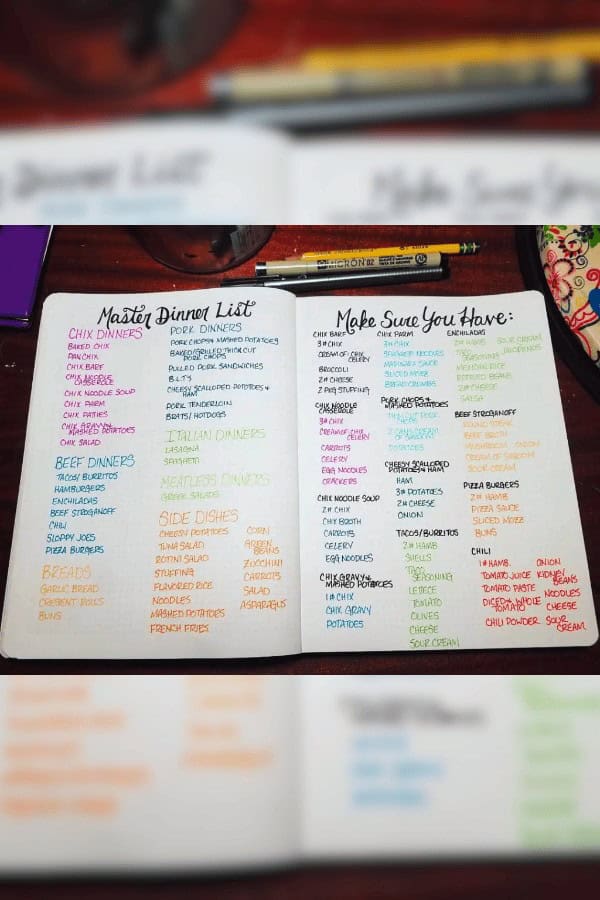 Master Dinner List
CHIX DINNERS
BAKED CHIX
PAN CHIX
CHIX BARF
CHIX NOODLE
CASSEROLE
CHIX NOODLE SOUP
CHIX PARM
CHIX PATTIES
CHIX GRAVY &
MASHED POTATOES
CHIX SALAD
BEEF DINNERS
TACOS/BURRITOS
HAMBURGERS
ENCHILADAS
BEEF STROGANOFF
CHILI
SLOPPY JOES
PIZZA BURGERS
BREADS
GARLIC BREAD
CRESENT ROLLS
BUNS
PORK DINNERS
PORK CHOPS & MASHED POTATOES
BAKED/GRILLED THICK CUT
PORK CHOPS
PULLED PORK SANDWICHES
B.L.T'S
CHEESY SCALLOPED POTATOES &
HAM
PORK TENDERLOIN
BRATS/HOTDOGS
ITALIAN DINNERS
LASAGNA
SPAGHETTI
MEATLESS DINNERS
GREEK SALADS
SIDE DISHES
CHEESY POTATOES
TUNA SALAD
ROTINI SALAD
STUFFING
FLAVORED RICE
NOODLES
MASHED POTATOES
FRENCH FRIES
CORN
GREEN
BEANS
ZUCCHINI
CARROTS
SALAD
ASPARAGUS
Make Sure You Have:
CHIX BARF
3# CHIX
CREAM OF CHIX
CELERY
BROCCOLI
2# CHEESE
2 PKG STUFFING
CHIX NOODLE
CASSEROLE
3# CHIX
CREAM OF CHIX
CELERY
CARROTS
CELERY
EGG NOODLES
CRACKERS
CHIX NOODLE SOUP
2# CHIX
CHIX BROTH
CARROTS
CELERY
EGG NOODLES
CHIX GRAVY &
MASHED POTATOES
1# CHIX
CHIX GRAVY
POTATOES
CHIX PARM
3# CHIX
SPAGHETTI NOODLES
MARINARA SAUCE
SLICED MOZZ
BREAD CRUMBS
PORK CHOPS &
MASHED POTATOES
THIN CUT PORK
CHOPS
2 CANS CREAM
OF SHROOM
POTATOES
CHEESY SCALLOPED
POTATOES & HAM
HAM
3# POTATOES
2# CHEESE
ONION
TACOS/BURRITOS
2# HAMB
SHELLS
TACO
SEASONING
LETTECE
TOMATO
OLIVES
CHEESE
SOUR CREAM
ENCHILADAS
2# HAMB
TACO
SEASONING
MEXICAN RICE
REFRIED BEANS
2# CHEESE
SALSA
SOUR CREAM
JALAPENOS
BEEF STROGANOFF
ROUND STEAK
BEEF BROTH
MUSHROOM ONION
CREAM OF SHROOM
SOUR CREAM
PIZZA BURGERS
2# HAMB
PIZZA SAUCE
SLICED MOZZ
BUNS
CHILI
1# HAMB.
TOMATO JUICE
TOMATO PASTE
DICED & WHOLE
TOMATO
CHILI POWDER
ONION
KIDNEY
BEANS
NOODLES
CHEESE
SOUR
CREAM
MICRON 02